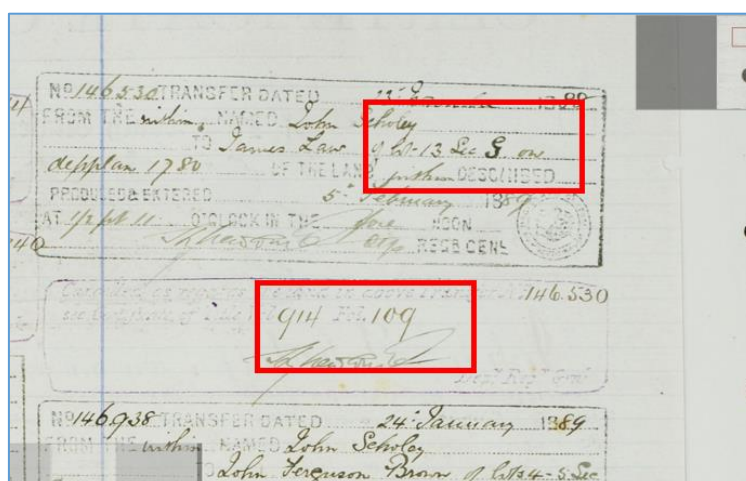 No 146530 TRANSFER DATED 1888
FROM THE within NAMED John Scholey
TO James Law of lot 13 Sec G on
dep plan 1780 OF THE LAND within DESCRIBED
PRODUCED & ENTERED 5th February 1889
AT 1/2 pt 11 O'CLOCK IN THE fore NOON
REGR GENL
Cancelled as regards the land in above Transfer No 146.530
see Certificate of Title Vol 914 Fol. 109
Depy Regr Genl
No 146938 TRANSFER DATED 24th January 1889
FROM THE within NAMED John Scholey
TO John Ferguson Brown of lots 4-5 Sec